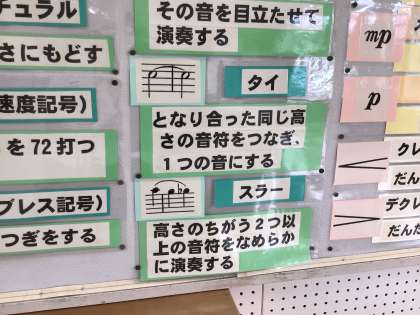 チュラル
さにもどす
速度記号)
を72打つ
ブレス記号)
つぎをする
その音を目立たせて
演奏する
タイ
となり合った同じ高
さの音符をつなぎ、
1つの音にする
スラー
高さのちがう2つ以
上の音符をなめらか
に演奏する
mp
p
クレ
だん
デクレ
だんだ